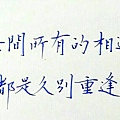 間所有的相
都是久別重逢